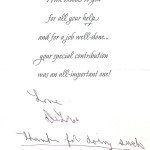 for all your help
and for a job well-done...
your special contribution
was an all-important one!
Love
thanks for doing such